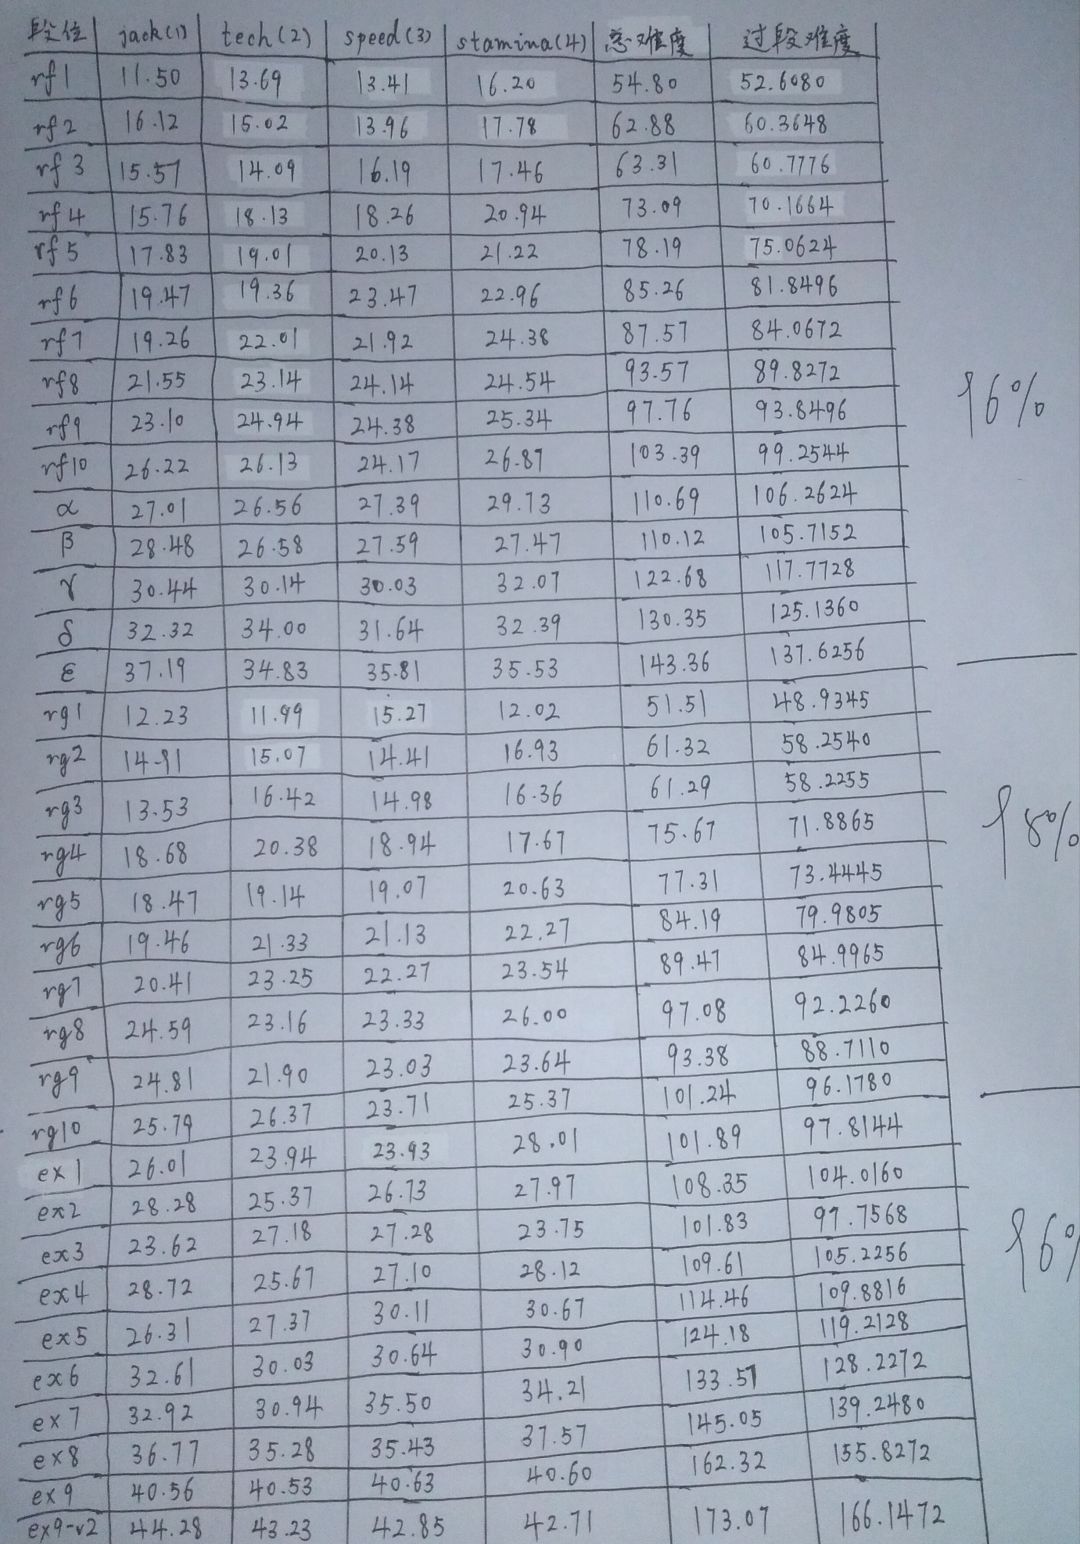 段位 jack(1) tech(2) speed(3) stamina(4) 总难度 过段难度
rf1 11.50 13.69 13.41 16.20 54.80 52.6080
rf2 16.12 15.02 13.96 17.78 62.88 60.3648
rf3 15.57 14.09 16.19 17.46 63.31 60.7776
rf4 15.76 18.13 18.26 20.94 73.09 70.1664
rf5 17.83 19.01 20.13 21.22 78.19 75.0624
rf6 19.47 19.36 23.47 22.96 85.26 81.8496
rf7 19.26 22.01 21.92 24.38 87.57 84.0672
rf8 21.55 23.14 24.14 24.54 93.57 89.8272
rf9 23.10 24.94 24.38 25.34 97.76 93.8496
96%
rf10 26.22 26.13 24.17 26.87 103.39 99.2544
α 27.01 26.56 27.39 29.73 110.69 106.2624
β 28.48 26.58 27.59 27.47 110.12 105.7152
γ 30.44 30.14 30.03 32.07 122.68 117.7728
δ 32.32 34.00 31.64 32.39 130.35 125.1360
ε 37.19 34.83 35.81 35.53 143.36 137.6256
rg1 12.23 11.99 15.27 12.02 51.51 48.9345
rg2 14.91 15.07 14.41 16.93 61.32 58.2540
rg3 13.53 16.42 14.98 16.36 61.29 58.2255
rg4 18.68 20.38 18.94 17.67 75.67 71.8865
95%
rg5 18.47 19.14 19.07 20.63 77.31 73.4445
rg6 19.46 21.33 21.13 22.27 84.19 79.9805
rg7 20.41 23.25 22.27 23.54 89.47 84.9965
rg8 24.59 23.16 23.33 26.00 97.08 92.2260
rg9 24.81 21.90 23.03 23.64 93.38 88.7110
rg10 25.79 26.37 23.71 25.37 101.24 96.1780
ex1 26.01 23.94 23.93 28.01 101.89 97.8144
ex2 28.28 25.37 26.73 27.97 108.35 104.0160
ex3 23.62 27.18 27.28 23.75 101.83 97.7568
ex4 28.72 25.67 27.10 28.12 109.61 105.2256
96%
ex5 26.31 27.37 30.11 30.67 114.46 109.8816
ex6 32.61 30.03 30.64 30.90 124.18 119.2128
ex7 32.92 30.94 35.50 34.21 133.57 128.2272
ex8 36.77 35.28 35.43 37.57 145.05 139.2480
ex9 40.56 40.53 40.63 40.60 162.32 155.8272
ex9-v2 44.28 43.23 42.85 42.71 173.07 166.1472